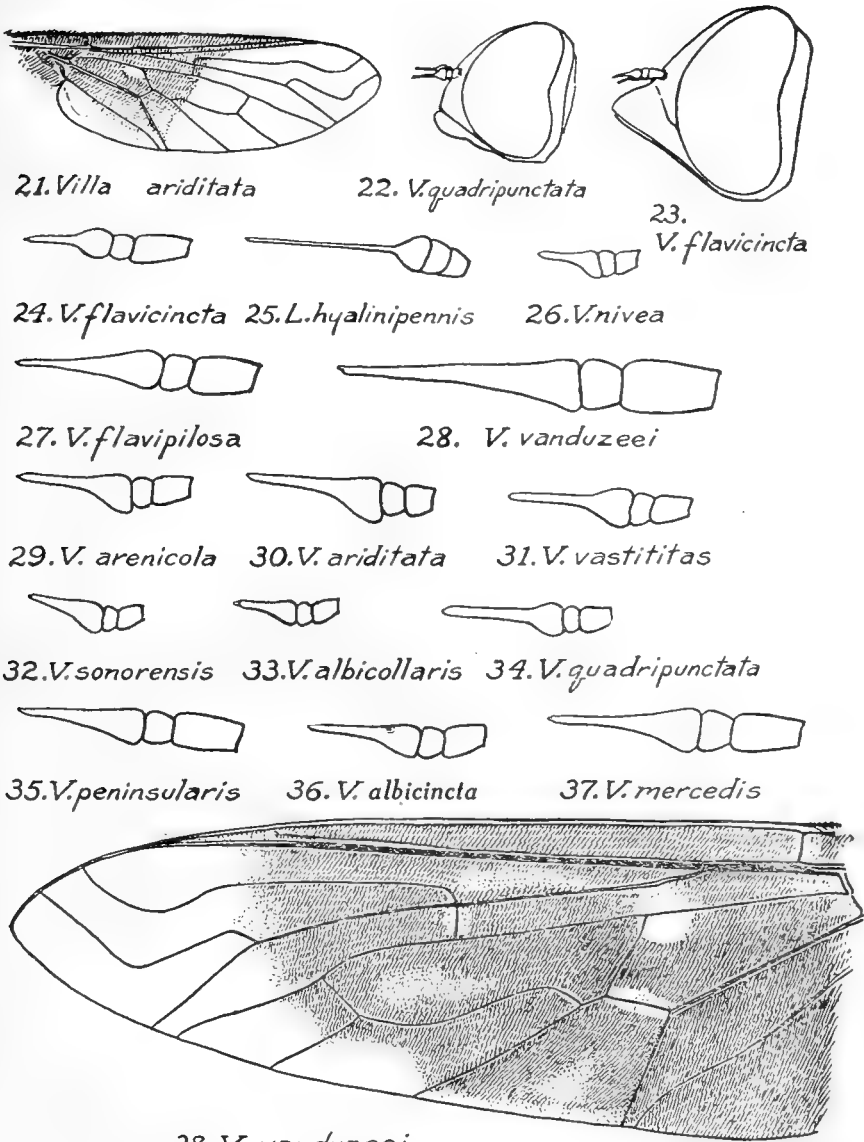 21. Villa ariditata 22. V. quadripunctata
23.
V. flavicincta
24. V. flavicincta 25. L. hyalinipennis 26. V. nivea
27. V. flavipilosa 28. V. vanduzeei
29. V. arenicola 30. V. ariditata 31. V. vastititas
32. V. sonorensis 33. V. albicollaris 34. V. quadripunctata
35. V. peninsularis 36. V. albicincta 37. V. mercedis